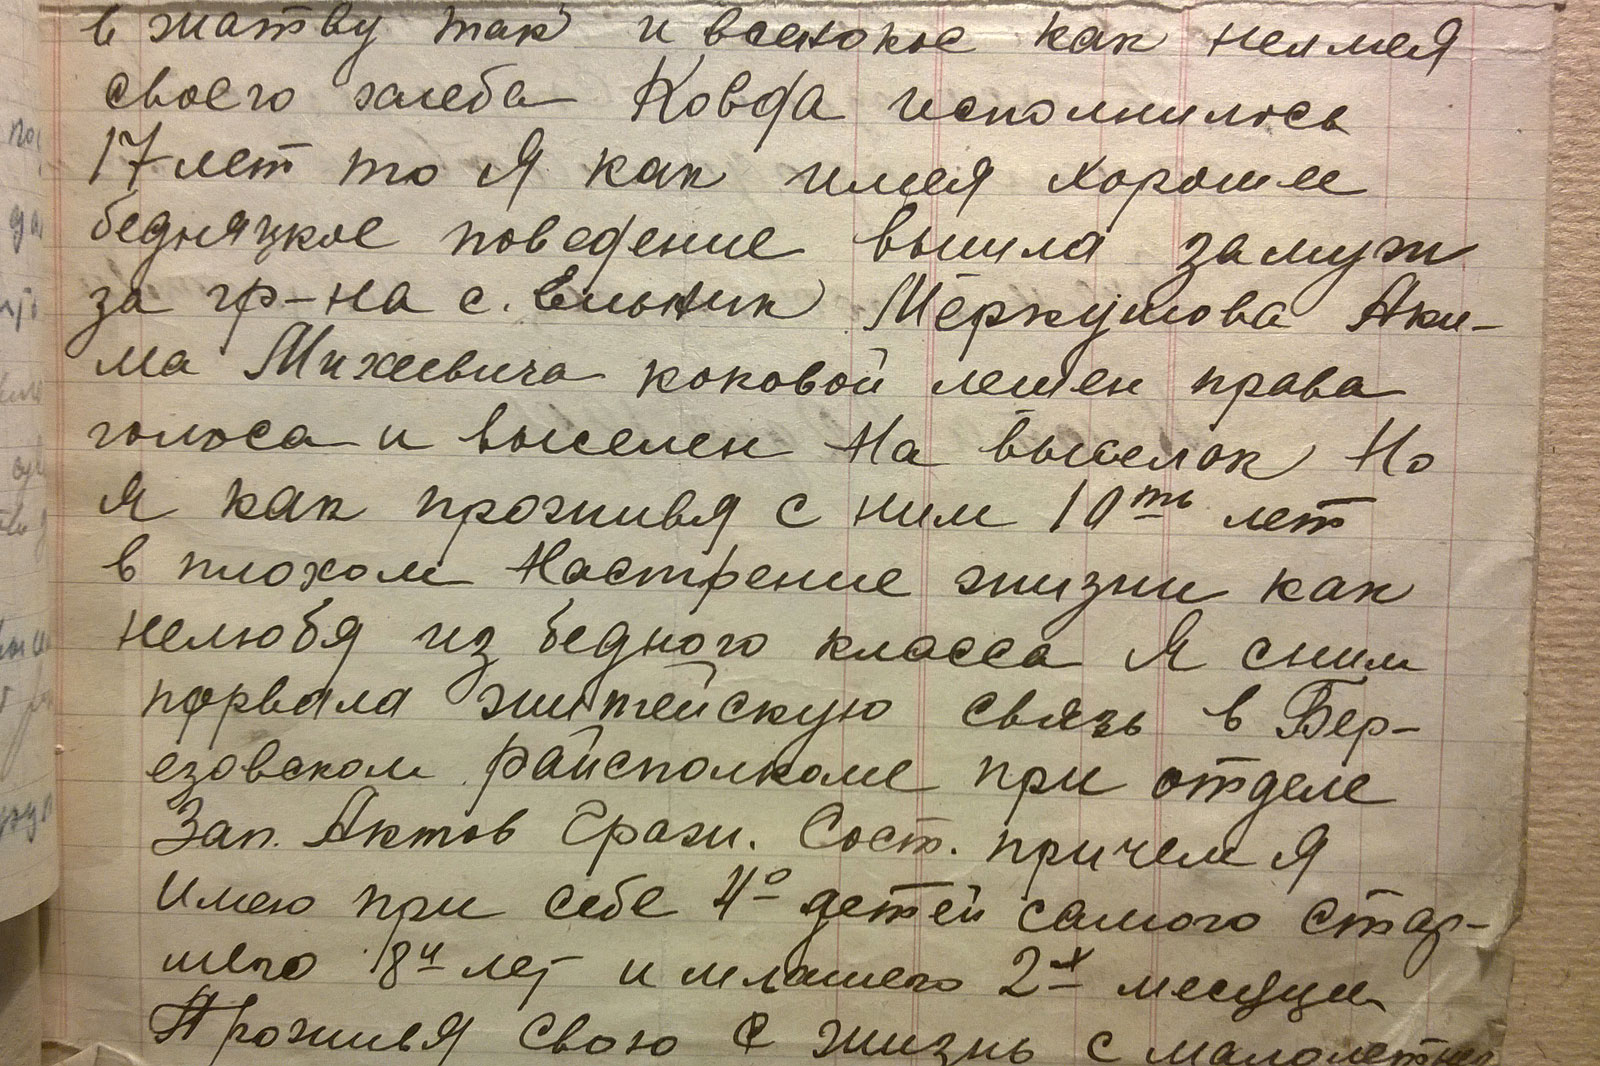 в жатву так и всенокос как неимея
своего хлеба Ковда исполнилось
17 лет то Я как имея хорошее
бедняцкое поведение вышла замуж
за гр-на с. Ельник Меркушова Аки-
ма Михеевича коковой лешен права
голоса и выселен На выселок Но
Я как проживя с ним 10ть лет
в плохом Настрение жизни как
нелюбя из бедного класса Я сним
порвала житейскую связь в Бер-
езовском райсполкоме при отделе
Зап. Актов Граж. Сост. причем Я
Имею при себе 4о детей самого стар-
шего 8и лет и млашего 2х месяцы
Проживя свою с жизнь с малолетны